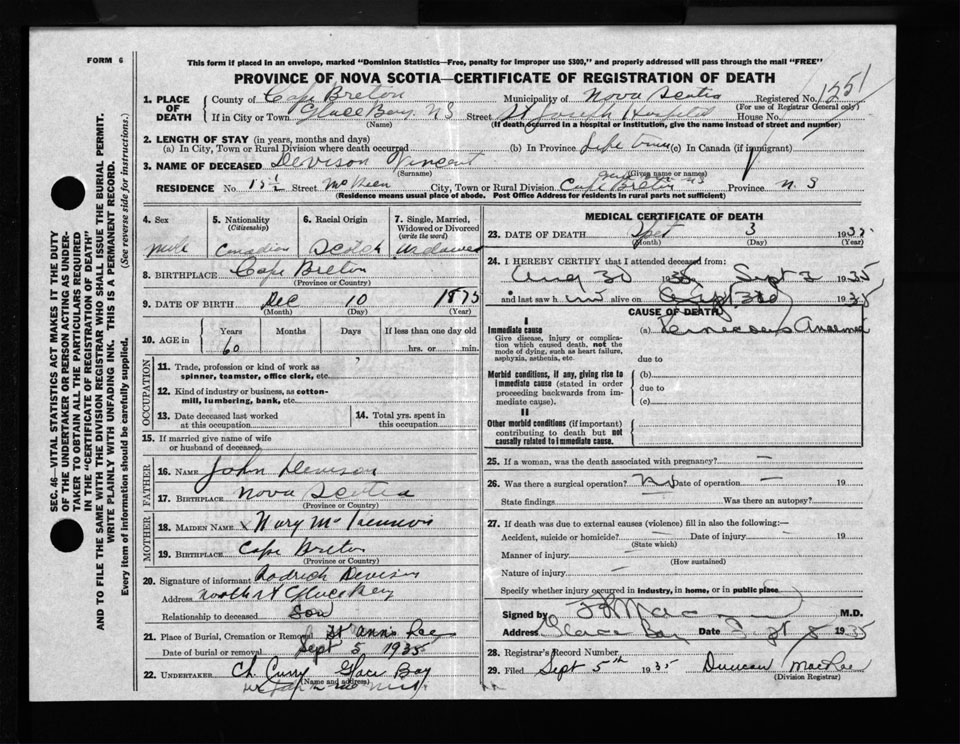 FORM 6
This form if placed in an envelope, marked "Dominion Statistics—Free, penalty for improper use $300," and properly addressed will pass through the mail "FREE"
PROVINCE OF NOVA SCOTIA—CERTIFICATE OF REGISTRATION OF DEATH
1. PLACE OF DEATH County of Cape Breton Municipality of Nova Scotia Registered No. 1251
(For use of Registrar General only)
If in City or Town Glace Bay, N S Street St Joseph Hospital House No.
(Name) (If death occurred in a hospital or institution, give the name instead of street and number)
2. LENGTH OF STAY (in years, months and days)
(a) In City, Town or Rural Division where death occurred (b) In Province Life Time (c) In Canada (if immigrant)
3. NAME OF DECEASED Devison Vincent
(Surname) (Given name or names)
RESIDENCE No. 15 1/2 Street McKeen City, Town or Rural Division Cape Breton Province N. S
(Residence means usual place of abode. Post Office Address for residents in rural parts not sufficient)
4. Sex 5. Nationality 6. Racial Origin 7. Single, Married, Widowed or Divorced
(Citizenship) (write the word)
Male Canadian Scotch Widowed
8. BIRTHPLACE Cape Breton
(Province or Country)
9. DATE OF BIRTH Dec 10 1875
(Month) (Day) (Year)
10. AGE in Years Months Days If less than one day old
60 hrs. or min.
OCCUPATION
11. Trade, profession or kind of work as spinner, teamster, office clerk, etc.
12. Kind of industry or business, as cotton-mill, lumbering, bank, etc.
13. Date deceased last worked at this occupation
14. Total yrs. spent in this occupation
15. If married give name of wife or husband of deceased
FATHER
16. NAME John Devison
17. BIRTHPLACE Nova Scotia
(Province or Country)
MOTHER
18. MAIDEN NAME Mary
19. BIRTHPLACE Cape Breton
(Province or Country)
20. Signature of informant Rodrick Devison
Address Glace Bay
Relationship to deceased Son
21. Place of Burial, Cremation or Removal St Anns
Date of burial or removal Sept 5 1935
22. UNDERTAKER Ch Curry Glace Bay
(Name and address)
MEDICAL CERTIFICATE OF DEATH
23. DATE OF DEATH Spet 3 1935
(Month) (Day) (Year)
24. I HEREBY CERTIFY that I attended deceased from:
Aug 30 1935 Sept 3 1935
and last saw h im alive on Sept 3rd 1935
CAUSE OF DEATH
I
Immediate cause (a) Pernecious Anaemea
Give disease, injury or complication which caused death, not the mode of dying, such as heart failure, asphyxia, asthenia, etc.
due to
Morbid conditions, if any, giving rise to immediate cause (stated in order proceeding backwards from immediate cause).
(b)
due to
(c)
II
Other morbid conditions (if important) contributing to death but not causally related to immediate cause.
25. If a woman, was the death associated with pregnancy? —
26. Was there a surgical operation? No Date of operation — 19
State findings Was there an autopsy?
27. If death was due to external causes (violence) fill in also the following:—
Accident, suicide or homicide? — Date of injury — 19
(State which)
Manner of injury —
(How sustained)
Nature of injury —
Specify whether injury occurred in industry, in home, or in public place
Signed by M.D.
Address Glace Bay Date Sept 5 1935
28. Registrar's Record Number
29. Filed Sept 5th 1935 Duncan MacRae
(Division Registrar)
SEC. 46—VITAL STATISTICS ACT MAKES IT THE DUTY
OF THE UNDERTAKER OR PERSON ACTING AS UNDER-
TAKER TO OBTAIN ALL THE PARTICULARS REQUIRED
IN THE "CERTIFICATE OF REGISTRATION OF DEATH"
AND TO FILE THE SAME WITH THE DIVISION REGISTRAR WHO SHALL ISSUE THE BURIAL PERMIT.
WRITE PLAINLY WITH UNFADING INK. THIS IS A PERMANENT RECORD.
Every item of information should be carefully supplied. (See reverse side for instructions.)